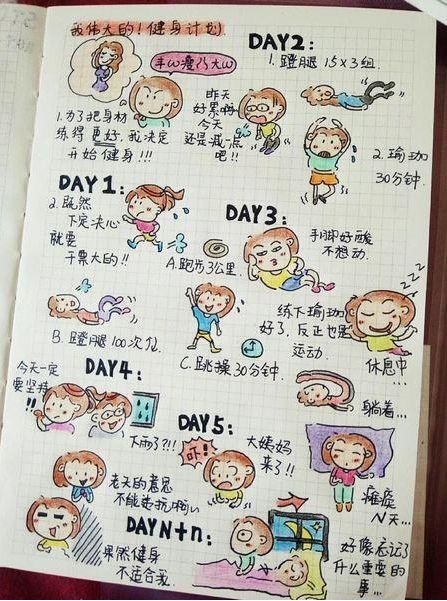 我伟大的！健身计划
1.为了把身材
练得更好，我决定
开始健身！！！
DAY1：
2.既然
下定决心
就要
干票大的!!
A.跑步3公里.
B.蹬腿100次位.
C.跳操30分钟.
DAY2：
1.蹬腿15×3组.
昨天
好累啊
今天
还是减一点
吧!!
2.瑜珈
30分钟.
DAY3：
手脚好酸
不想动.
练下瑜珈
好了，反正也是
运动.
zzz
休息中...
躺着...
DAY4：
今天一定
要坚持
!!
下雨了?!!
老天的意思
不能违抗啊
果然健身
不适合我.
DAY5：
吓!!
大姨妈
来了!!
瘫痪
N天...
DAY N+n：
好像忘记了
什么重要的
事...